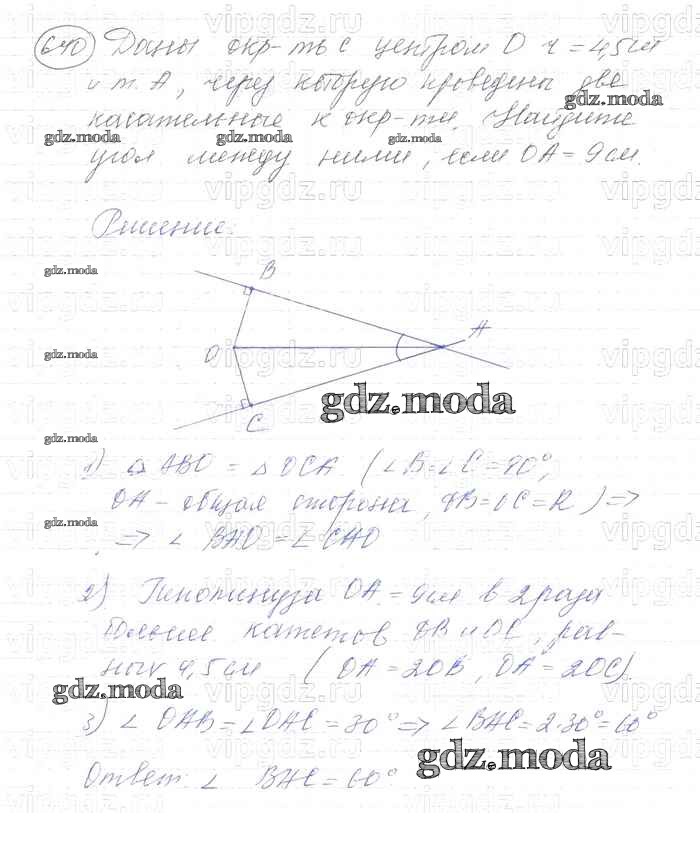 640 Даны окр-ть с центром О r = 4,5 см
и т. А, через которую проведены две
касательные к окр-ти. Найдите
угол между ними, если ОА = 9 см.
Решение:
В
О
А
С
1) △ АВО = △ ОСА (∠В=∠С=90°,
ОА - общая сторона, ОВ=ОС=R) =>
=> ∠ ВАО = ∠ САО
2) Гипотинуза ОА = 9см в 2 раза
больше катетов ОВ и ОС, рав-
ных 4,5 см (ОА = 2ОВ, ОА = 2ОС).
3) ∠ ОАВ = ∠ОАС = 30° => ∠ВАС = 2·30° = 60°
Ответ: ∠ ВАС = 60°
gdz.moda
vipgdz.ru